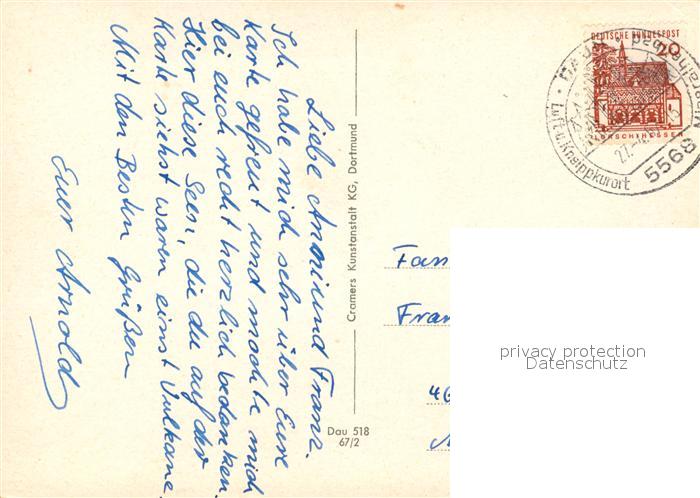 Liebe Anni und Franz.
Ich habe mich sehr über Eure
Karte gefreut und möchte mich
bei euch recht herzlich bedanken.
Hier diese Seen, die du auf der
Karte siehst waren einst Vulkane.
Mit den Besten Grüßen
Euer Arnold
Cramers Kunstanstalt KG, Dortmund
Dau 518
67/2
DEUTSCHE BUNDESPOST
20
LORSCH/HESSEN
DAUN
Mineralheilbad
Luft- u. Kneippkurort
5568
Fam
Fran
privacy protection
Datenschutz